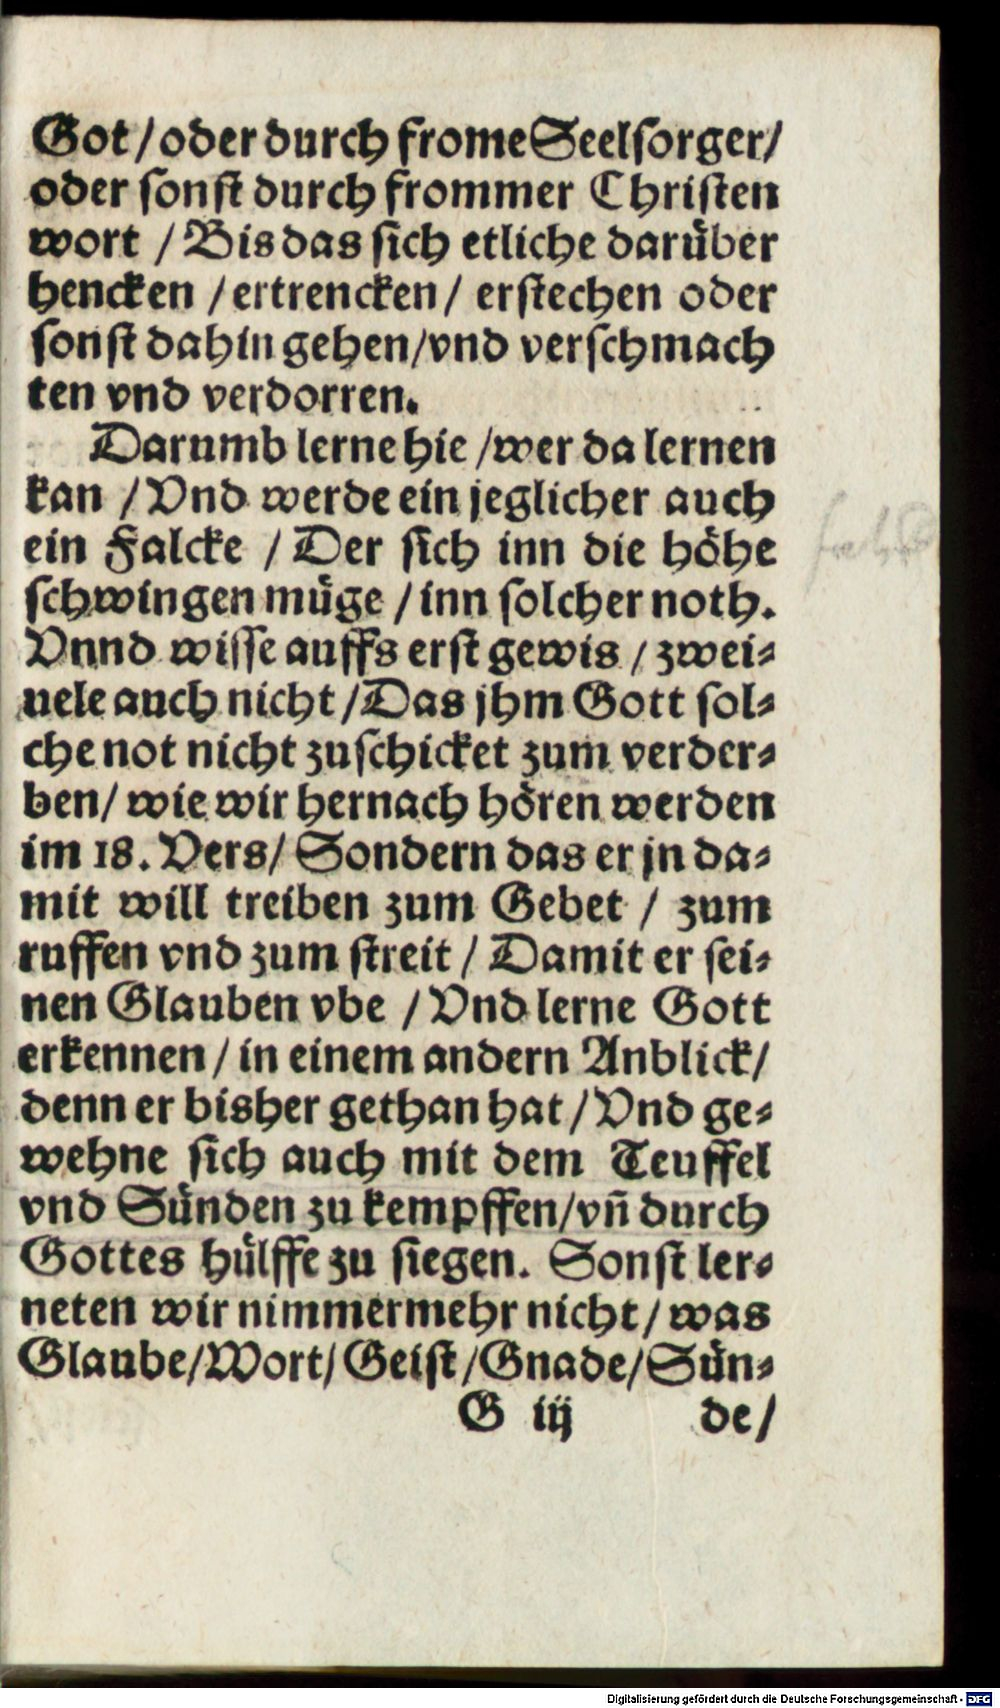 Got / oder durch frome Seelsorger /
oder sonst durch frommer Christen
wort / Bis das sich etliche darüber
hencken / ertrencken / erstechen oder
sonst dahin gehen / vnd verschmach
ten vnd verdorren.
Darumb lerne hie / wer da lernen
kan / Vnd werde ein jeglicher auch
ein Falcke / Der sich inn die höhe
schwingen müge / inn solcher noth.
Vnnd wisse auffs erst gewis / zwei⸗
uele auch nicht / Das jhm Gott sol⸗
che not nicht zuschicket zum verder⸗
ben / wie wir hernach hören werden
im 18. Vers / Sondern das er jn da⸗
mit will treiben zum Gebet / zum
ruffen vnd zum streit / Damit er sei⸗
nen Glauben vbe / Vnd lerne Gott
erkennen / in einem andern Anblick /
denn er bisher gethan hat / Vnd ge⸗
wehne sich auch mit dem Teuffel
vnd Sünden zu kempffen / vñ durch
Gottes hülffe zu siegen. Sonst ler⸗
neten wir nimmermehr nicht / was
Glaube / Wort / Geist / Gnade / Sün⸗
G iij de /
Digitalisierung gefördert durch die Deutsche Forschungsgemeinschaft - DFG